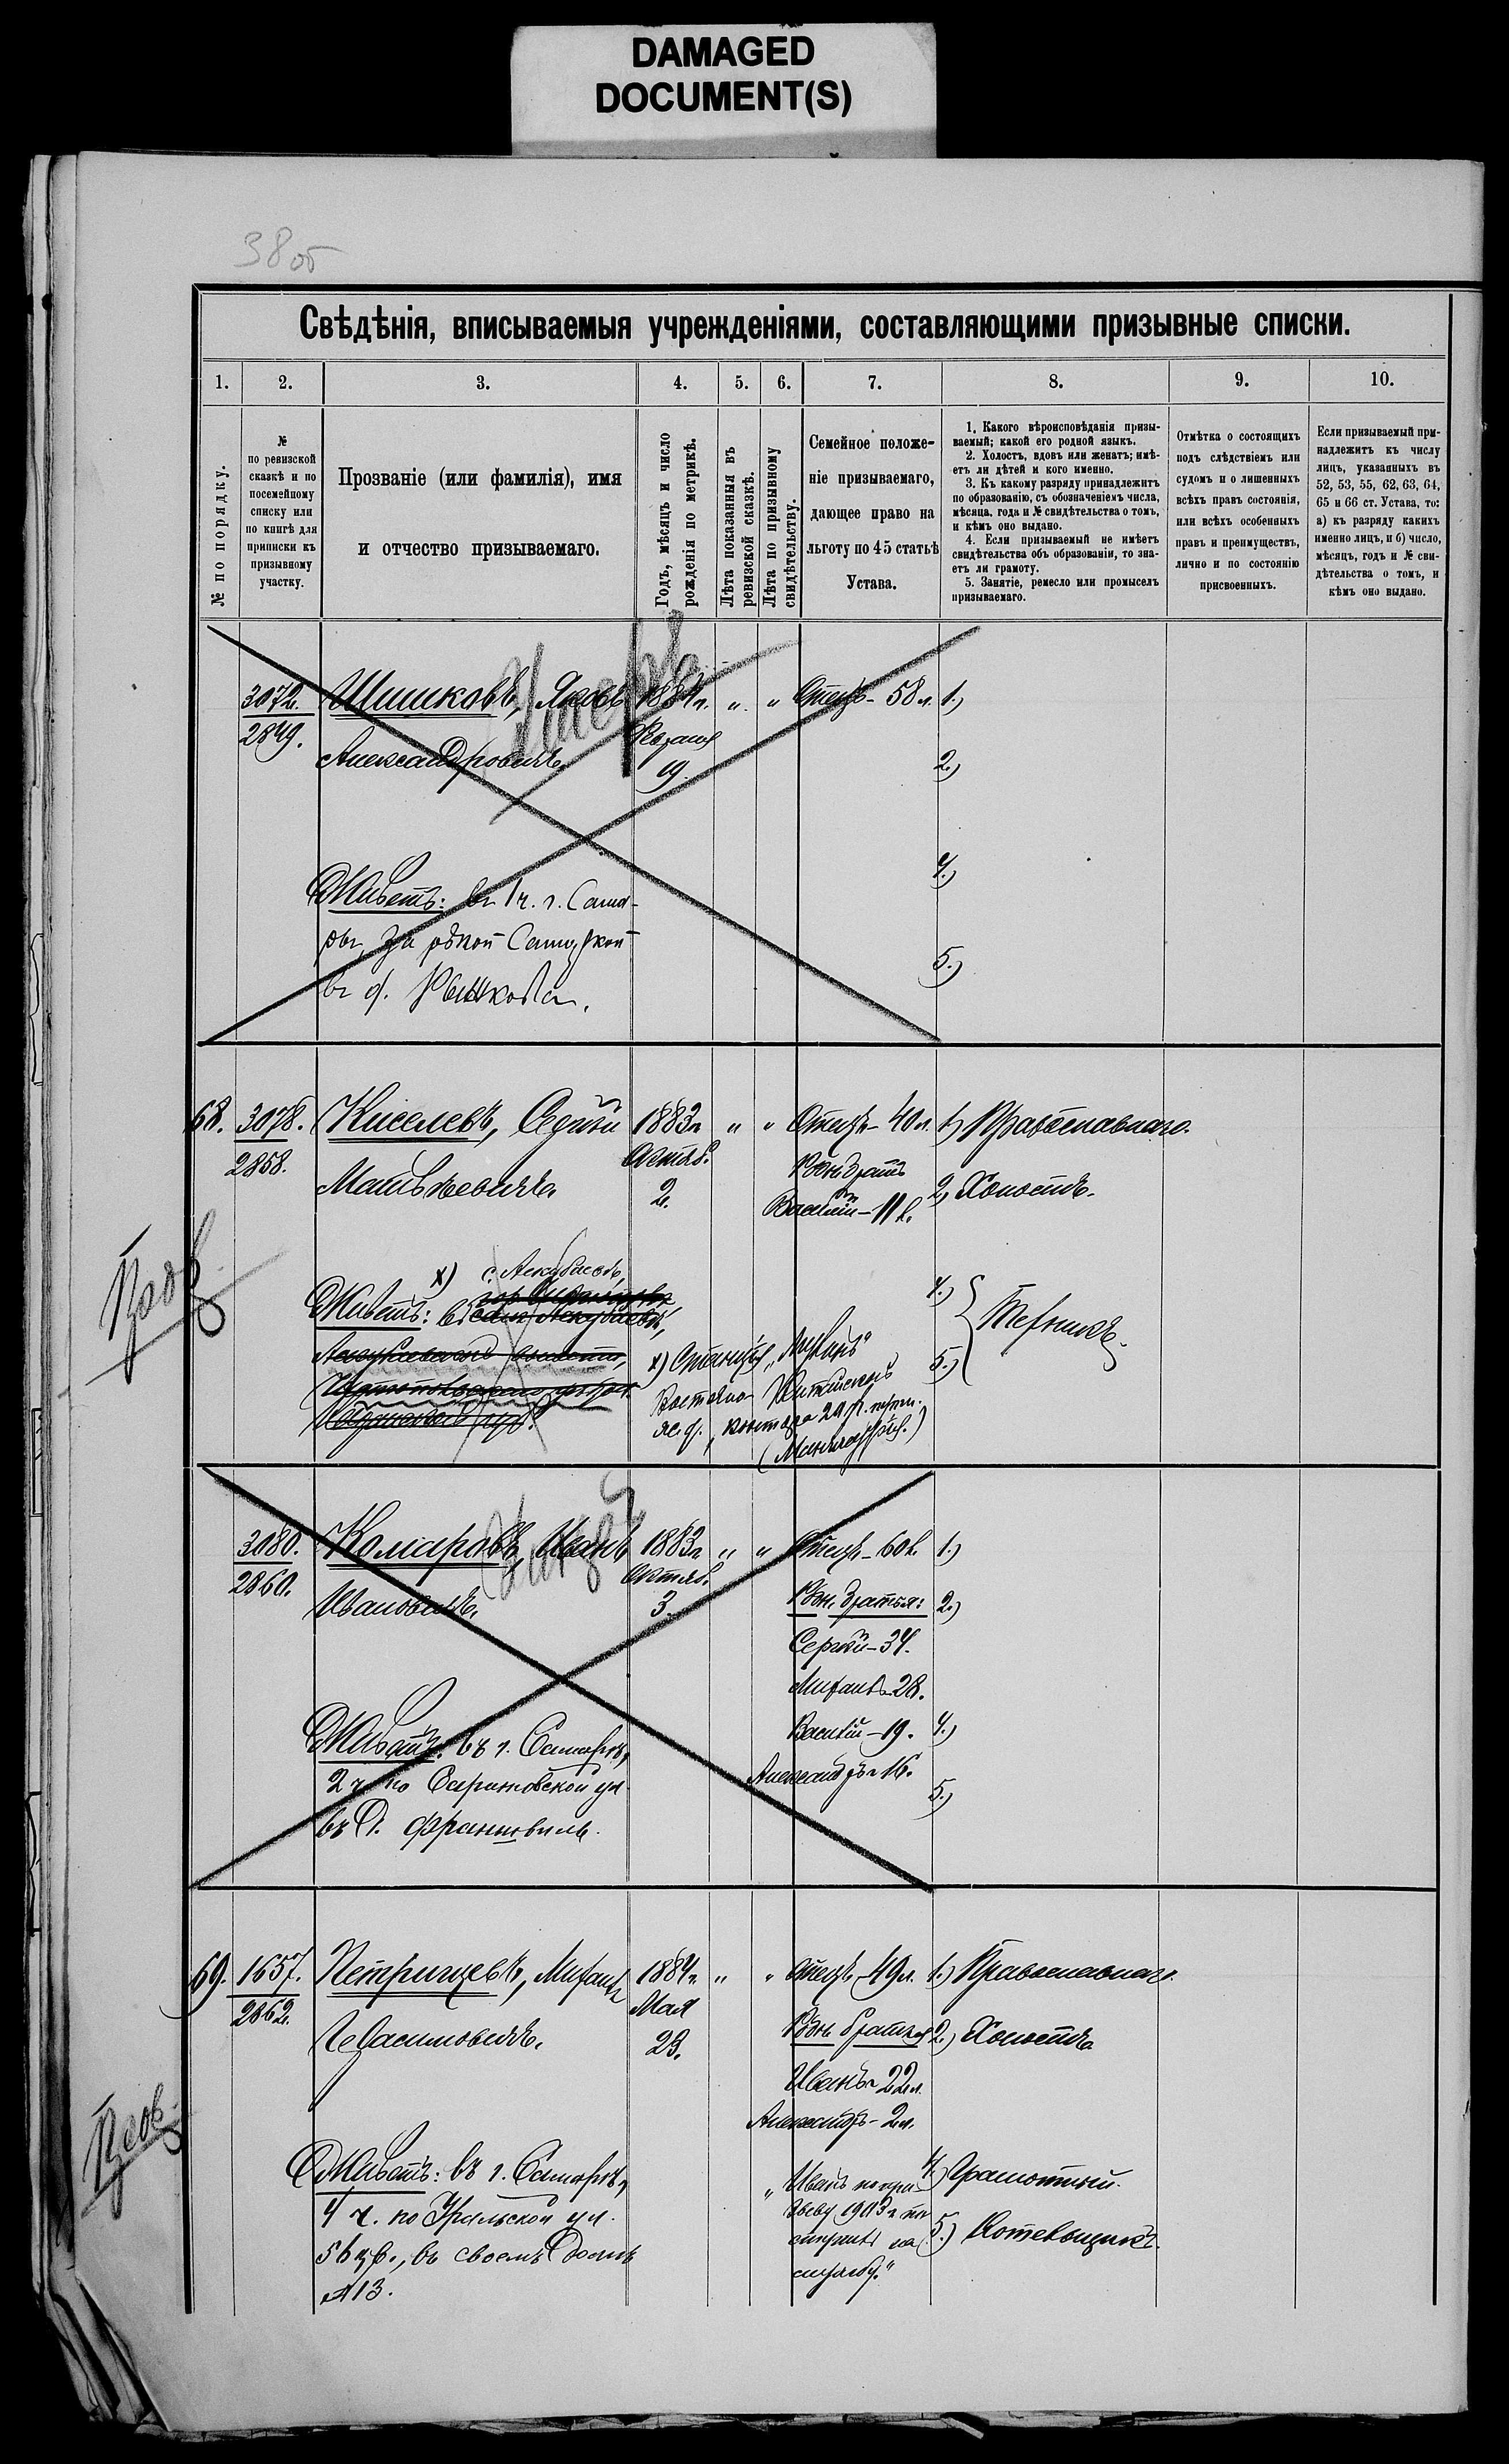 DAMAGED
DOCUMENT(S)
38 об
Свѣдѣнія, вписываемыя учрежденіями, составляющими призывные списки.
1. 2. 3. 4. 5. 6. 7. 8. 9. 10.
№ по порядку.
№
по ревизской
сказкѣ и по
посемейному
списку или
по книгѣ для
приписки къ
призывному
участку.
Прозваніе (или фамилія), имя
и отчество призываемаго.
Годъ, мѣсяцъ и число
рожденія по метрикѣ.
Лѣта показанныя въ
ревизской сказкѣ.
Лѣта по призывному
свидѣтельству.
Семейное положе-
ніе призываемаго,
дающее право на
льготу по 45 статьѣ
Устава.
1. Какого вѣроисповѣданія призы-
ваемый; какой его родной языкъ.
2. Холостъ, вдовъ или женатъ; имѣ-
етъ ли дѣтей и кого именно.
3. Къ какому разряду принадлежитъ
по образованію, съ обозначеніемъ числа,
мѣсяца, года и № свидѣтельства о томъ,
и кѣмъ оно выдано.
4. Если призываемый не имѣетъ
свидѣтельства объ образованіи, то зна-
етъ ли грамоту.
5. Занятіе, ремесло или промыселъ
призываемаго.
Отмѣтка о состоящихъ
подъ слѣдствіемъ или
судомъ и о лишенныхъ
всѣхъ правъ состоянія,
или всѣхъ особенныхъ
правъ и преимуществъ,
лично и по состоянію
присвоенныхъ.
Если призываемый при-
надлежитъ къ числу
лицъ, указанныхъ въ
52, 53, 55, 62, 63, 64,
65 и 66 ст. Устава, то:
а) къ разряду какихъ
именно лицъ, и б) число,
мѣсяцъ, годъ и № сви-
дѣтельства о томъ, и
кѣмъ оно выдано.
3072. Шишковъ, Яковъ 1884 г. „ „ Отецъ - 58 л. 1.)
2849. Александровичъ. 19. 2.)
4.)
Живетъ: въ 1 ч. г. Сама-
рѣ, за рѣкой Самаркой 5.)
въ д. Рынкова.
68. 3078. Киселевъ, Сергѣй 1883 г. „ „ Отецъ - 40 л. 1.) Православнаго.
2858. Матвѣевичъ. Октяб. 2. Родн. братъ 2.) Холостъ.
Василій - 11 л.
х) с. Аскубаевѣ
Живетъ: въ 4.)
х) Станція 5.) Техникъ.
Восточно-Китайской
ж. д., контора
3080. Комаровъ, Иванъ 1883 г. „ „ Отецъ - 60 л. 1.)
2860. Ивановичъ. Октяб. 3. Родн. братья: 2.)
Сергѣй - 34.
Михаилъ - 28.
Живетъ: въ г. Самарѣ, Василій - 19. 4.)
2 ч. по Саратовской ул. Александръ - 16. 5.)
въ д.
69. 1657. Петрищевъ, Михаилъ 1884 г. „ „ Отецъ 49 л. 1.) Православнаго.
2862. Герасимовичъ. Мая 23. Родн. братья 2.) Холостъ
Иванъ - 22 л.
Александръ - 2 л.
Живетъ: въ г. Самарѣ, „Иванъ по при- 4.) Грамотный.
4 ч. по Уральской ул. зыву 1903 г. по-
56 кв., въ своемъ домѣ ступилъ на 5.) Котельщикъ.
№ 13. службу.“